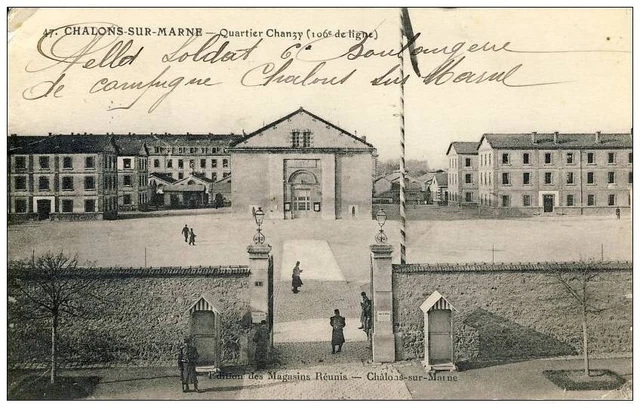 47. CHALONS-SUR-MARNE — Quartier Chanzy (106e de ligne)
Nello Soldat 6e Boulangerie
de campagne Chalons sur Marne
Edition des Magasins Réunis — Châlons-sur-Marne